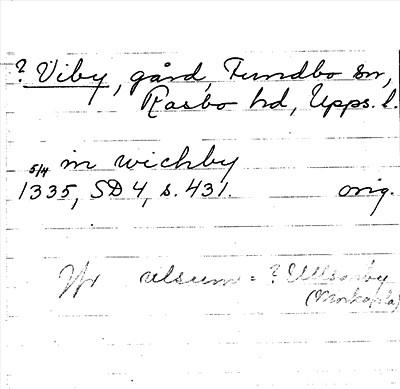 ? Viby, gård, Funbo sn,
Rasbo hd, Upps. l.
5/4 in wichby
1335, SD 4, s. 431. orig.
ulsum = ? Ullsärby